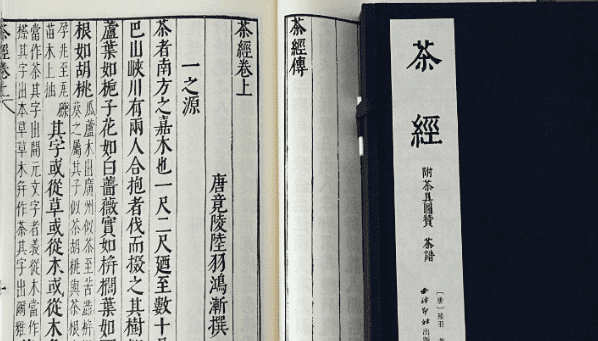 茶經
附茶具圖贊 茶譜
〔唐〕陸羽
西泠印社出版
茶經傳
茶經卷上
唐竟陵陸羽鴻漸撰
一之源
茶者南方之嘉木也一尺二尺廼至數十
巴山峽川有兩人合抱者伐而掇之其樹
蘆葉如梔子花如白薔薇實如栟櫚葉如
根如胡桃
瓜蘆木出廣州似茶至苦澁栟
葵之屬其子似茶胡桃與茶根
孕兆至瓦礫
苗木上抽
其字或從草或從木或從木
當作茶其字出開元文字者義從木當作
搽其字出本草草木并作茶其字出爾雅
茶經卷上